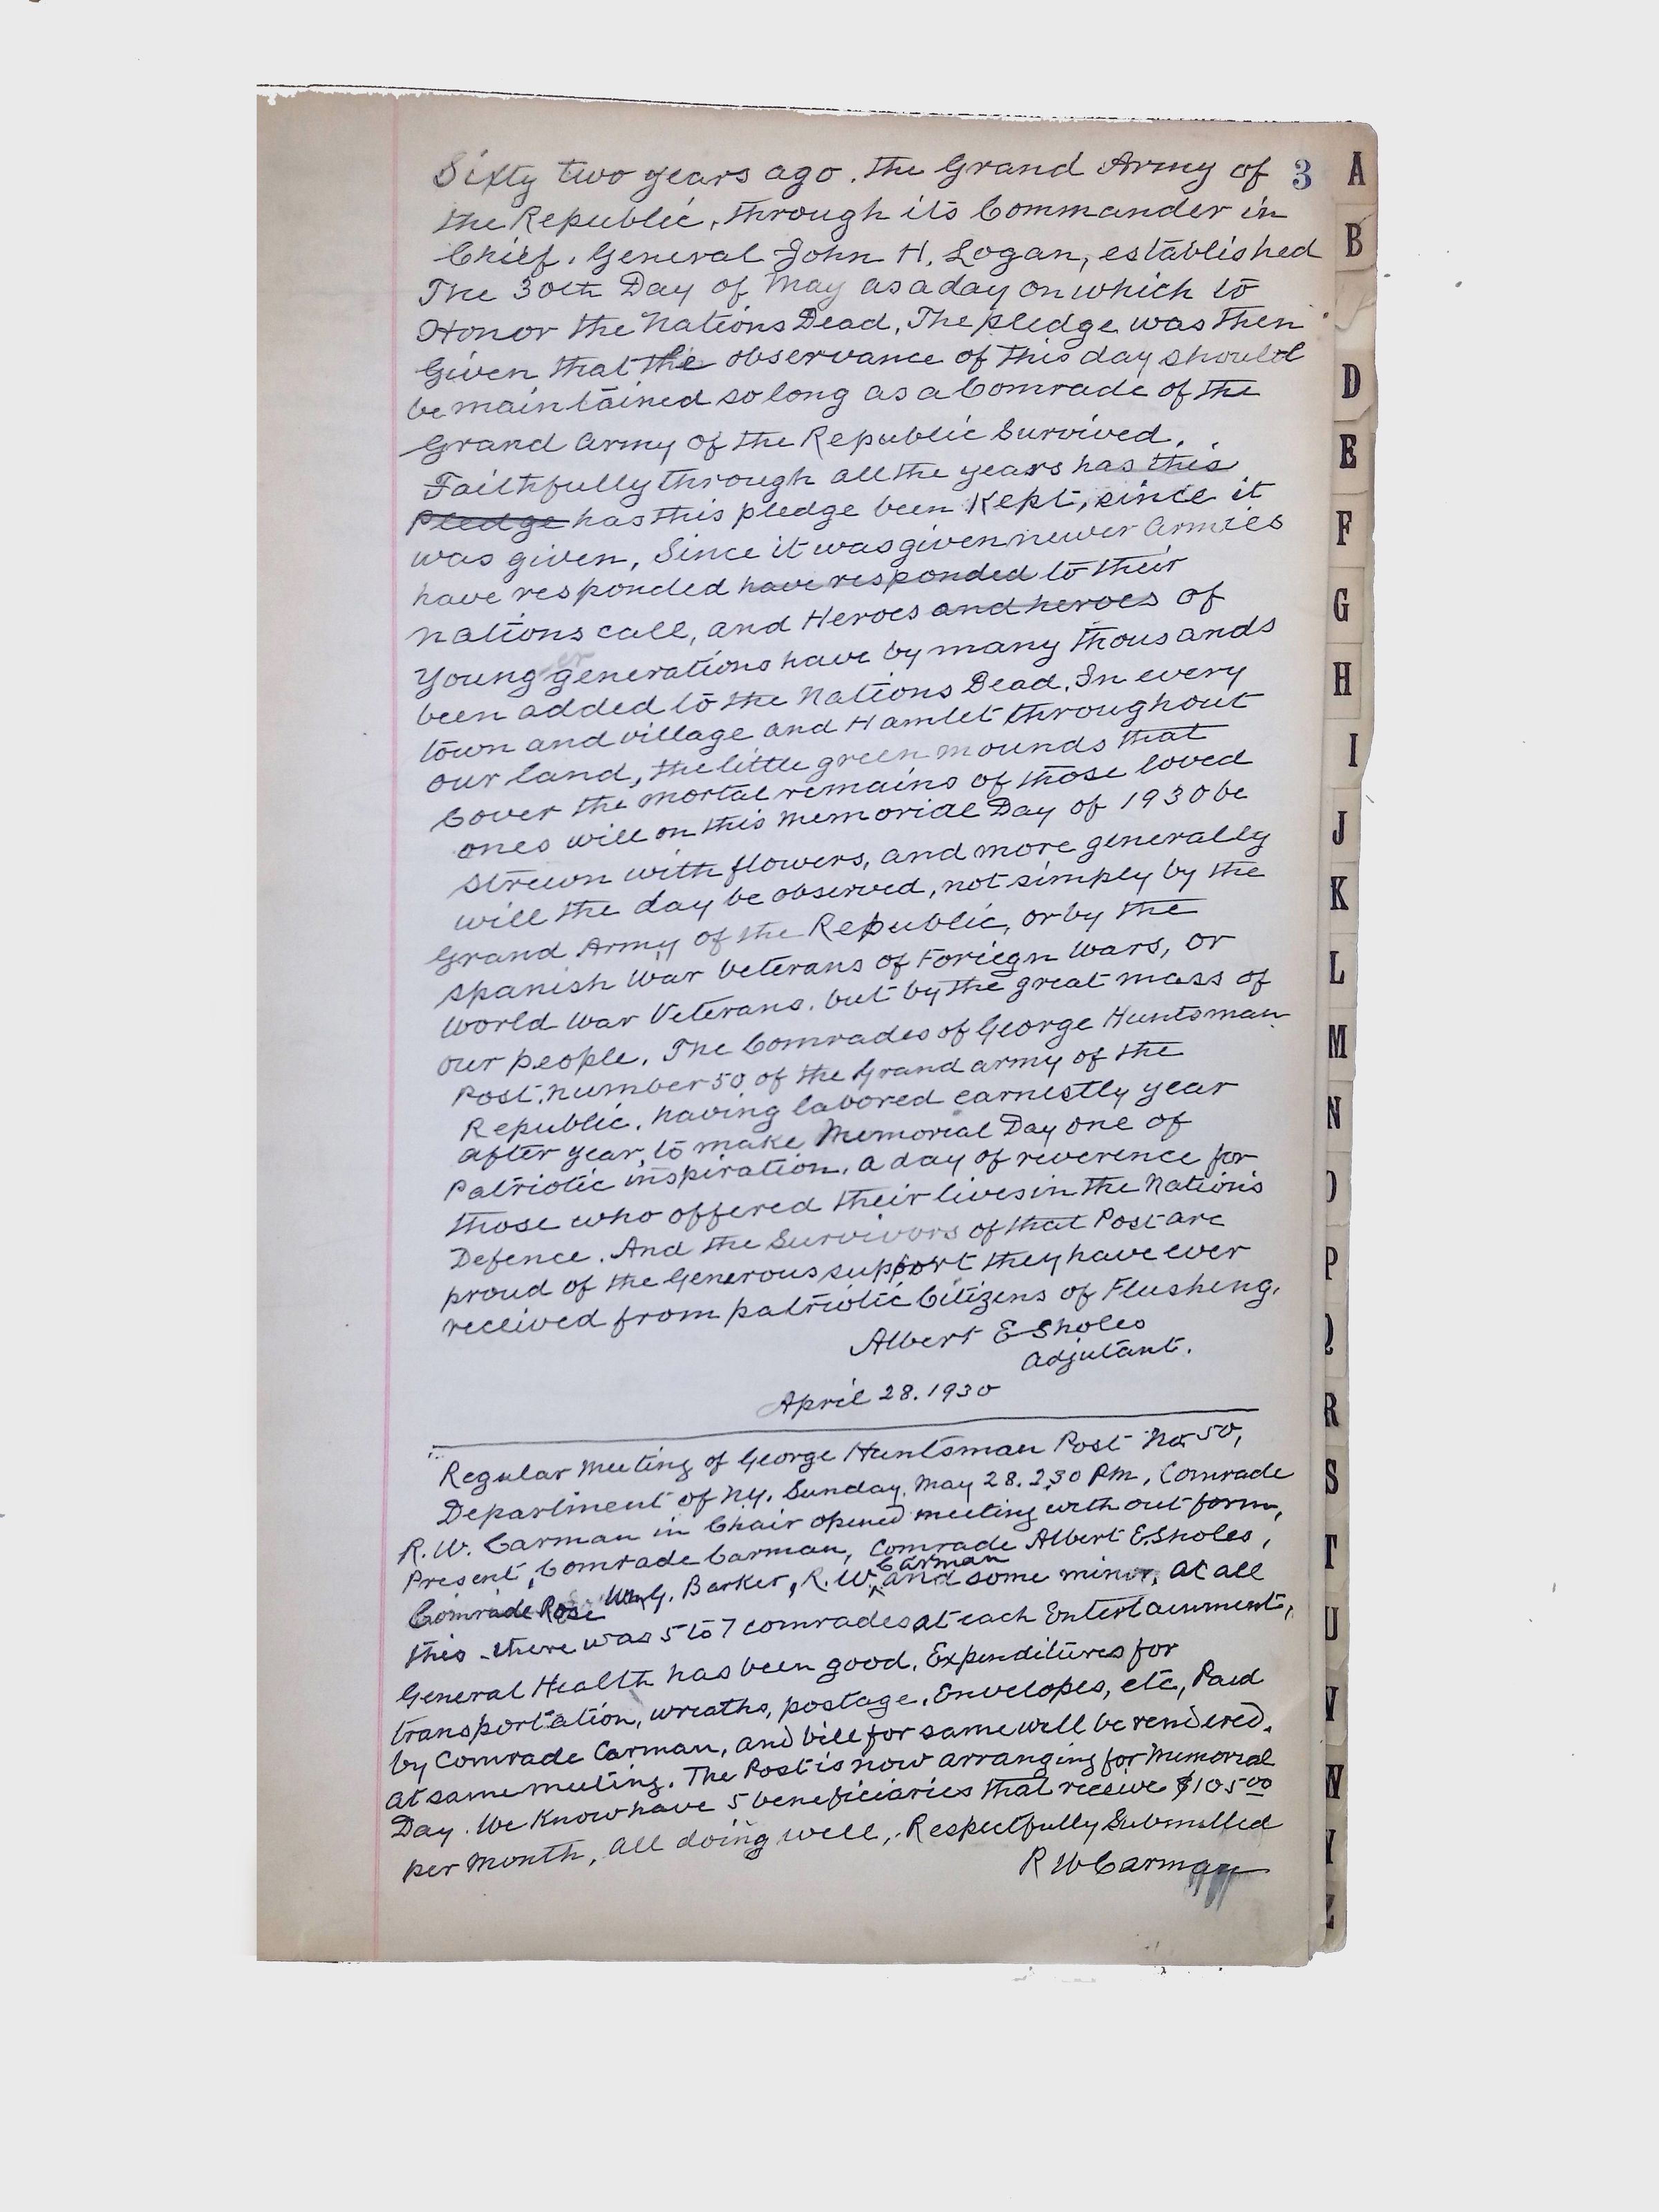 Sixty two years ago. the Grand Army of 3
the Republic, through its Commander in
Chief. General John H. Logan, established
The 30th Day of May as a day on which to
Honor the Nations Dead, The pledge was then
Given that the observance of this day should
be maintained so long as a Comrade of the
Grand Army of the Republic Survived.
Faithfully through all the years has this
Pledge has this pledge been Kept, since it
was given, Since it was given newer Armies
have responded have responded to their
nations call, and Heroes and heroes of
Younger generations have by many thousands
been added to the Nations Dead. In every
town and village and Hamlet throughout
our land, the little green mounds that
Cover the mortal remains of those loved
ones will on this Memorial Day of 1930 be
strewn with flowers, and more generally
will the day be observed, not simply by the
Grand Army of the Republic, or by the
Spanish War Veterans of Foriegn Wars, or
World War Veterans. but by the great mass of
our people. The Comrades of George Huntsman
Post. number 50 of the Grand army of the
Republic. having labored earnestly year
after year, to make Memorial Day one of
Patriotic inspiration. a day of reverence for
those who offered their lives in the Nations
Defence. And the Survivors of that Post are
proud of the Generous support they have ever
received from patriotic Citizens of Flushing.
Albert E Sholes
Adjutant.
April 28. 1930
Regular Meeting of George Huntsman Post No 50,
Department of N.Y. Sunday. May 28. 2.30 PM, Comrade
R. W. Carman in Chair opened meeting with out form,
Present, Comrade Carman, Comrade Albert E. Sholes,
Comrade Rose Wm G. Barker, R. W. Carman and some minor, at all
this - there was 5 to 7 comrades at each Entertainment,
General Health has been good. Expenditures for
transportation, wreaths, postage, Envelopes, etc, Paid
by Comrade Carman, and bill for same will be rendered.
at same meeting. The Post is now arranging for Memorial
Day. We Know have 5 beneficiaries that receive $105 00
per Month, all doing well,. Respectfully Submitted
R W Carman
A
B
D
E
F
G
H
I
J
K
L
M
N
O
P
Q
R
S
T
U
V
W
Y
Z